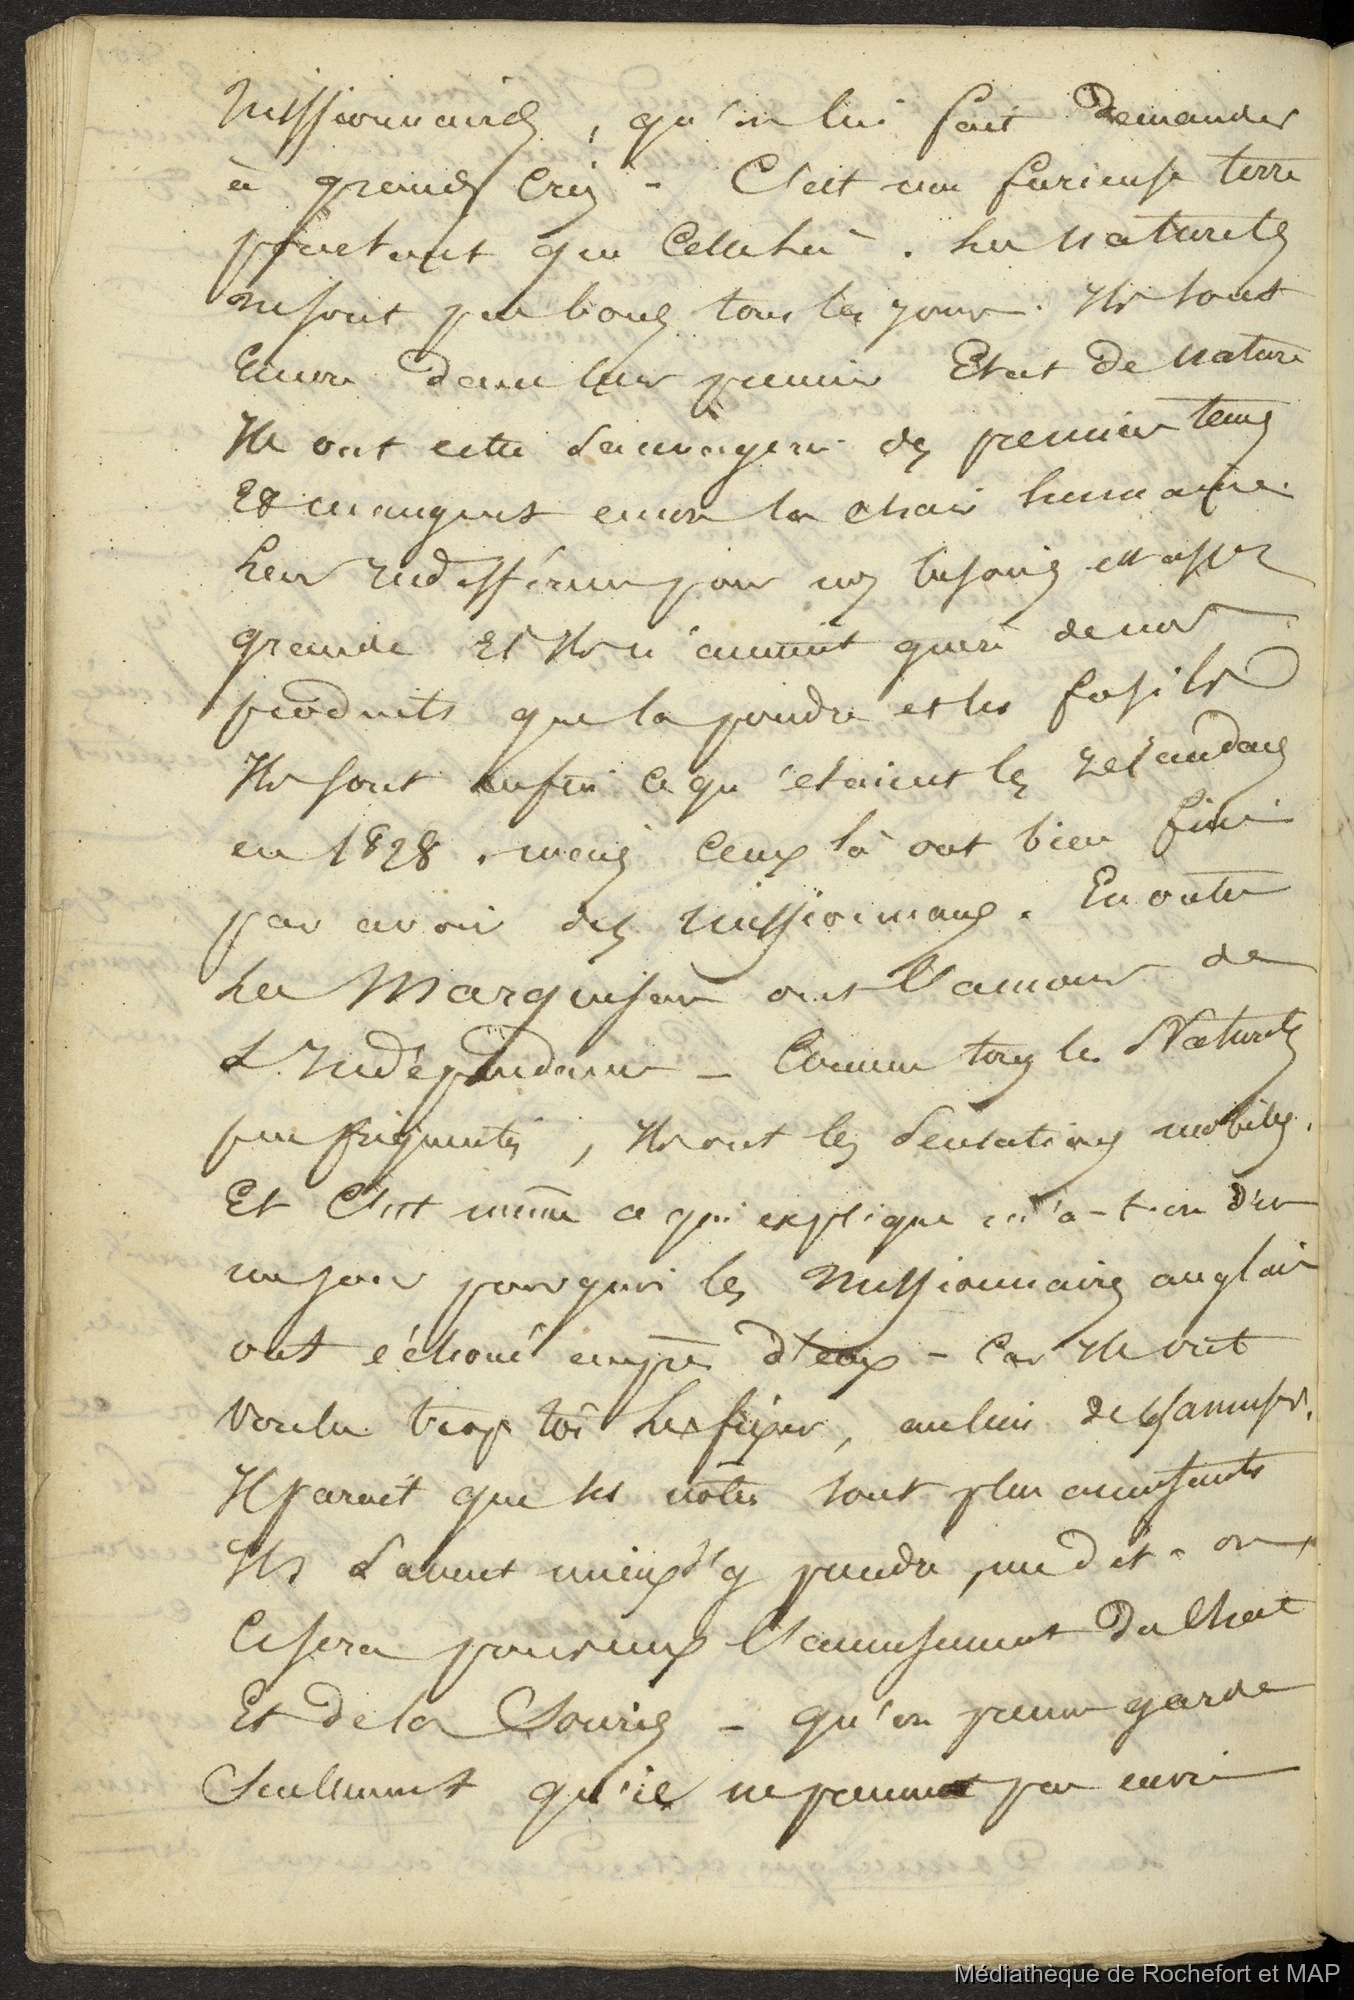 Missionnaires, qu'on lui fait demander
à grands Cris - C'est une furieuse terre
pourtant que Celle là. Les naturels
ne sont pas bons tous les jours. Ils sont
Encore dans leur premier Etat de nature
Ils ont cette sauvagerie des premiers tems
Et mangent encore la chair humaine.
Leur Indifférence pour nos besoins est assez
grande Et Ils n'aiment guère de nos
produits que la poudre et les fusils
Ils sont enfin ce qu'étaient les zélandais
en 1828. mais Ceux là ont bien fini
par avoir des missionnaires. En outre
Les Marquisiens ont l'amour de
L'Indépendance - Comme tous les Naturels
peu fréquentés, Ils ont les sensations mobiles.
Et C'est même ce qui explique m'a-t-on dit
un jour pourquoi les Missionnaires anglais
ont échoué auprès d'eux - Car Ils ont
voulu trop tôt les fixer, au lieu de les amuser.
Il parait que les nôtres sont plus amusants
Ils savent mieux s'y prendre, me dit-on
Ce sera pour eux l'amusement du Chat
Et de la Souris - qu'on prenne garde
Seulement qu'il ne prenne pas envie
Médiathèque de Rochefort et MAP